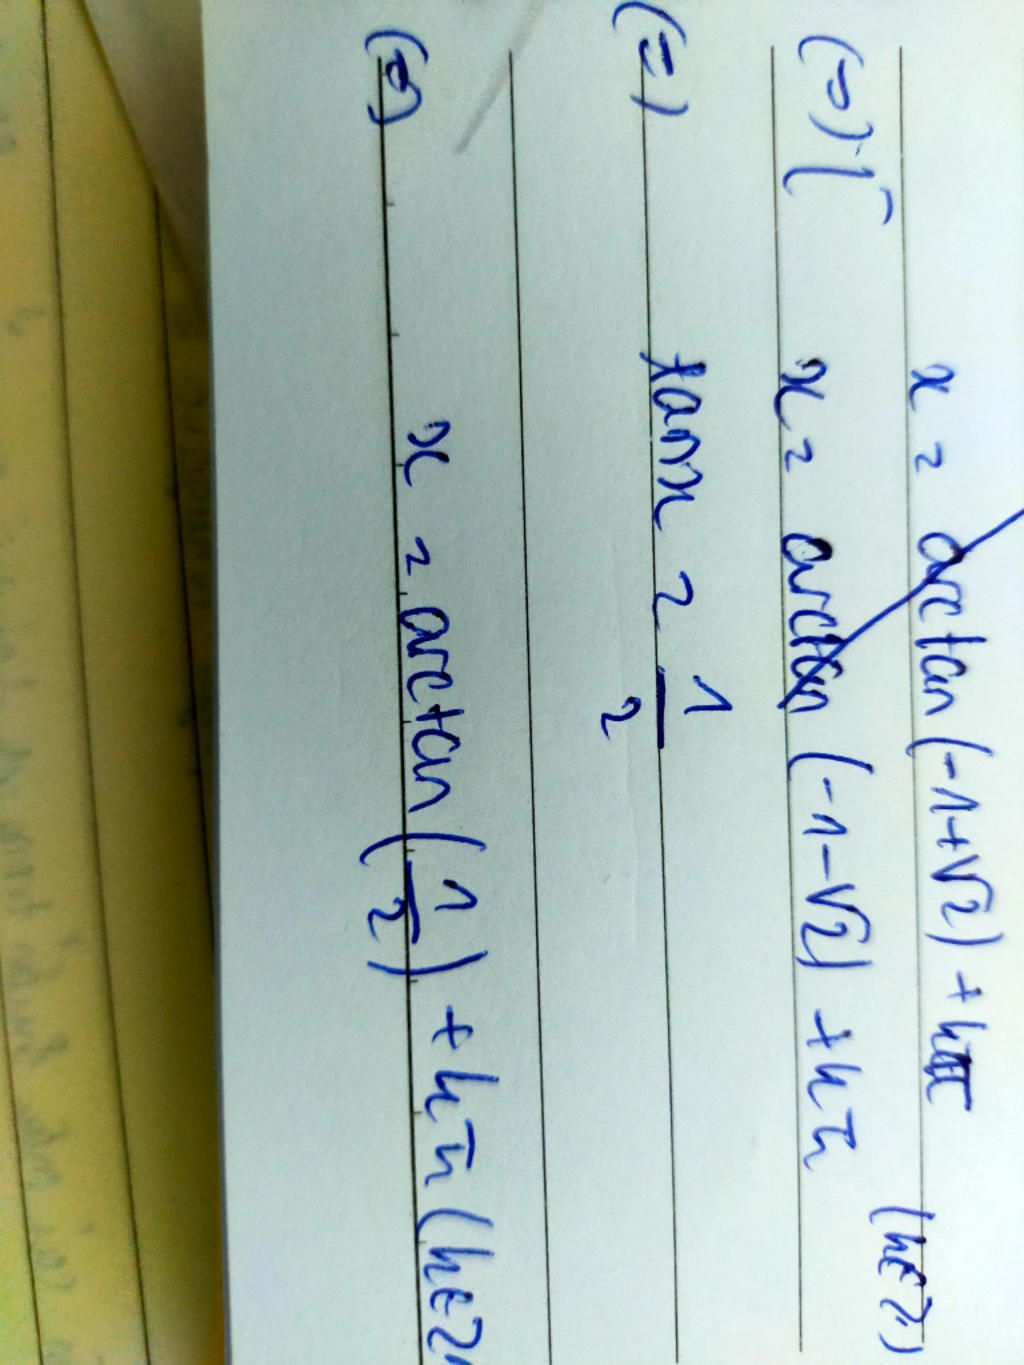 x = arctan (-1+√2) + kπ
(=) [ x = arctan (-1-√2) + kπ (k∈Z)
(=) tanx = 1/2
(=) x = arctan (1/2) + kπ (k∈Z)